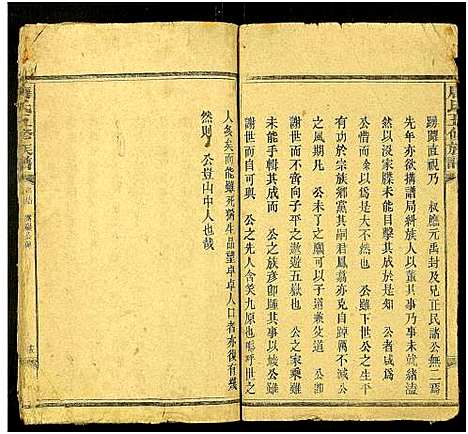 唐氏五修族譜
踴躍直視乃 叔應元禹封及兄正民諸公無二焉
先年亦欲搆譜局糾族人以董其事乃事未就緒溘
然以沒宋牒未能目擊其成於是知 公者咸爲
公惜而余以爲是大不然也 公雖下世公之生平
有功於宗族鄉黨其嗣君鳳嘉亦克自踔厲不減公
之風期凡 公未了之願可以于道兼攵道 公卽
謝世而不啻向子平之遨遊五嶽也 公之家乘雖
未能手輯其成而 公之族彦卽踵其事以竣公雖
謝世而自可與 公之先人含笑九原也嗚呼世之
人多矣而能雖死猶生品望卓卓人口者亦復有幾
然則 公豈山中人也哉
唐氏五修族譜